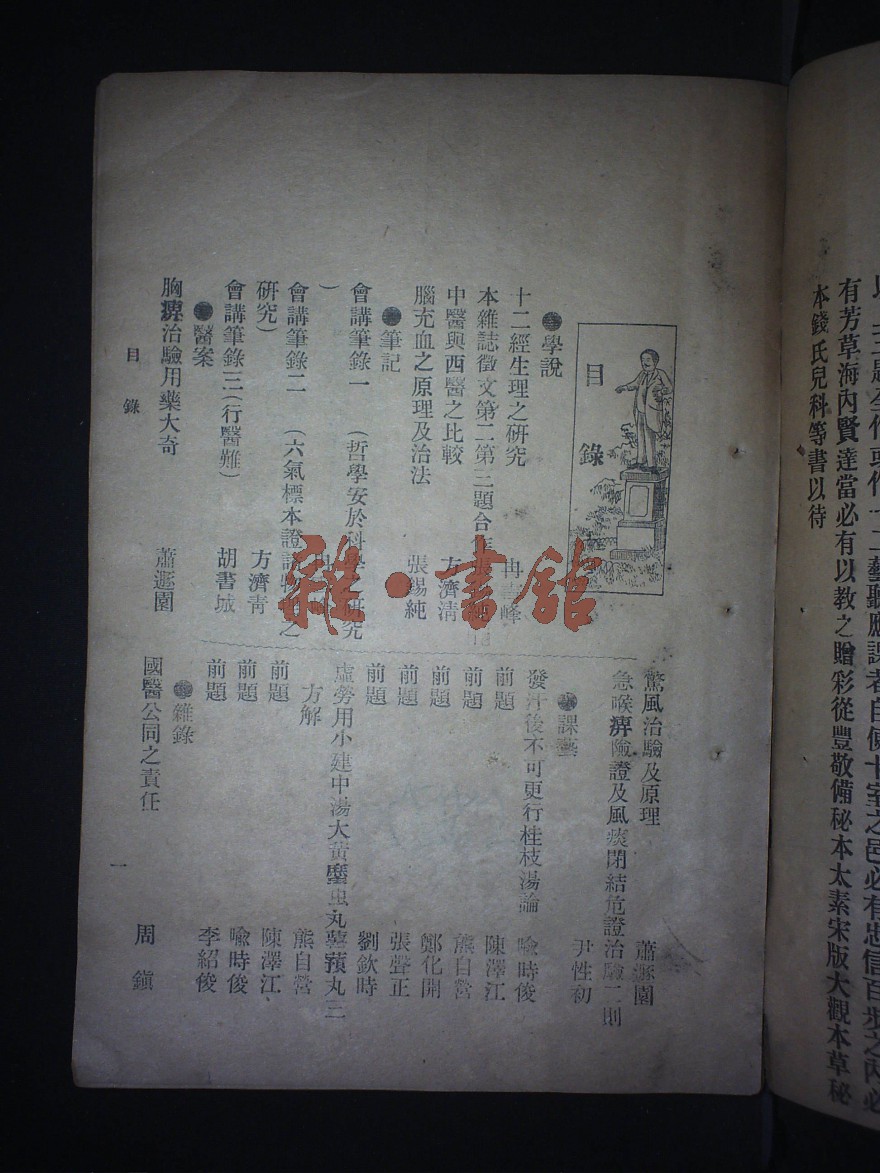 有芳草海內賢達當必有以教之贈彩從豐敬備秘本太素宋版大觀本草秘
本錢氏兒科等書以待
目錄
學說
十二經生理之研究 冉峰
本雜誌徵文第二第三題合作
中醫與西醫之比較 方濟清
腦充血之原理及治法 張錫純
筆記
會講筆錄一 (哲學安於科學之研究
)
會講筆錄二 (六氣標本證諸物理之
研究) 方濟青
會講筆錄三(行醫難) 胡書城
醫案
胸痹治驗用藥大奇 蕭遯園
驚風治驗及原理 蕭遯園
急喉痹險證及風痰閉結危證治驗二則
尹性初
課藝
發汗後不可更行桂枝湯論 喩時俊
前題 陳澤江
前題 熊自營
前題 鄭化開
前題 張聲正
前題 劉欽時
虛勞用小建中湯大黃䗪虫丸薯蕷丸三
方解 熊自營
前題 陳澤江
前題 喩時俊
前題 李紹俊
雜錄
國醫公同之責任 周鎮
目錄
一
雜·書館